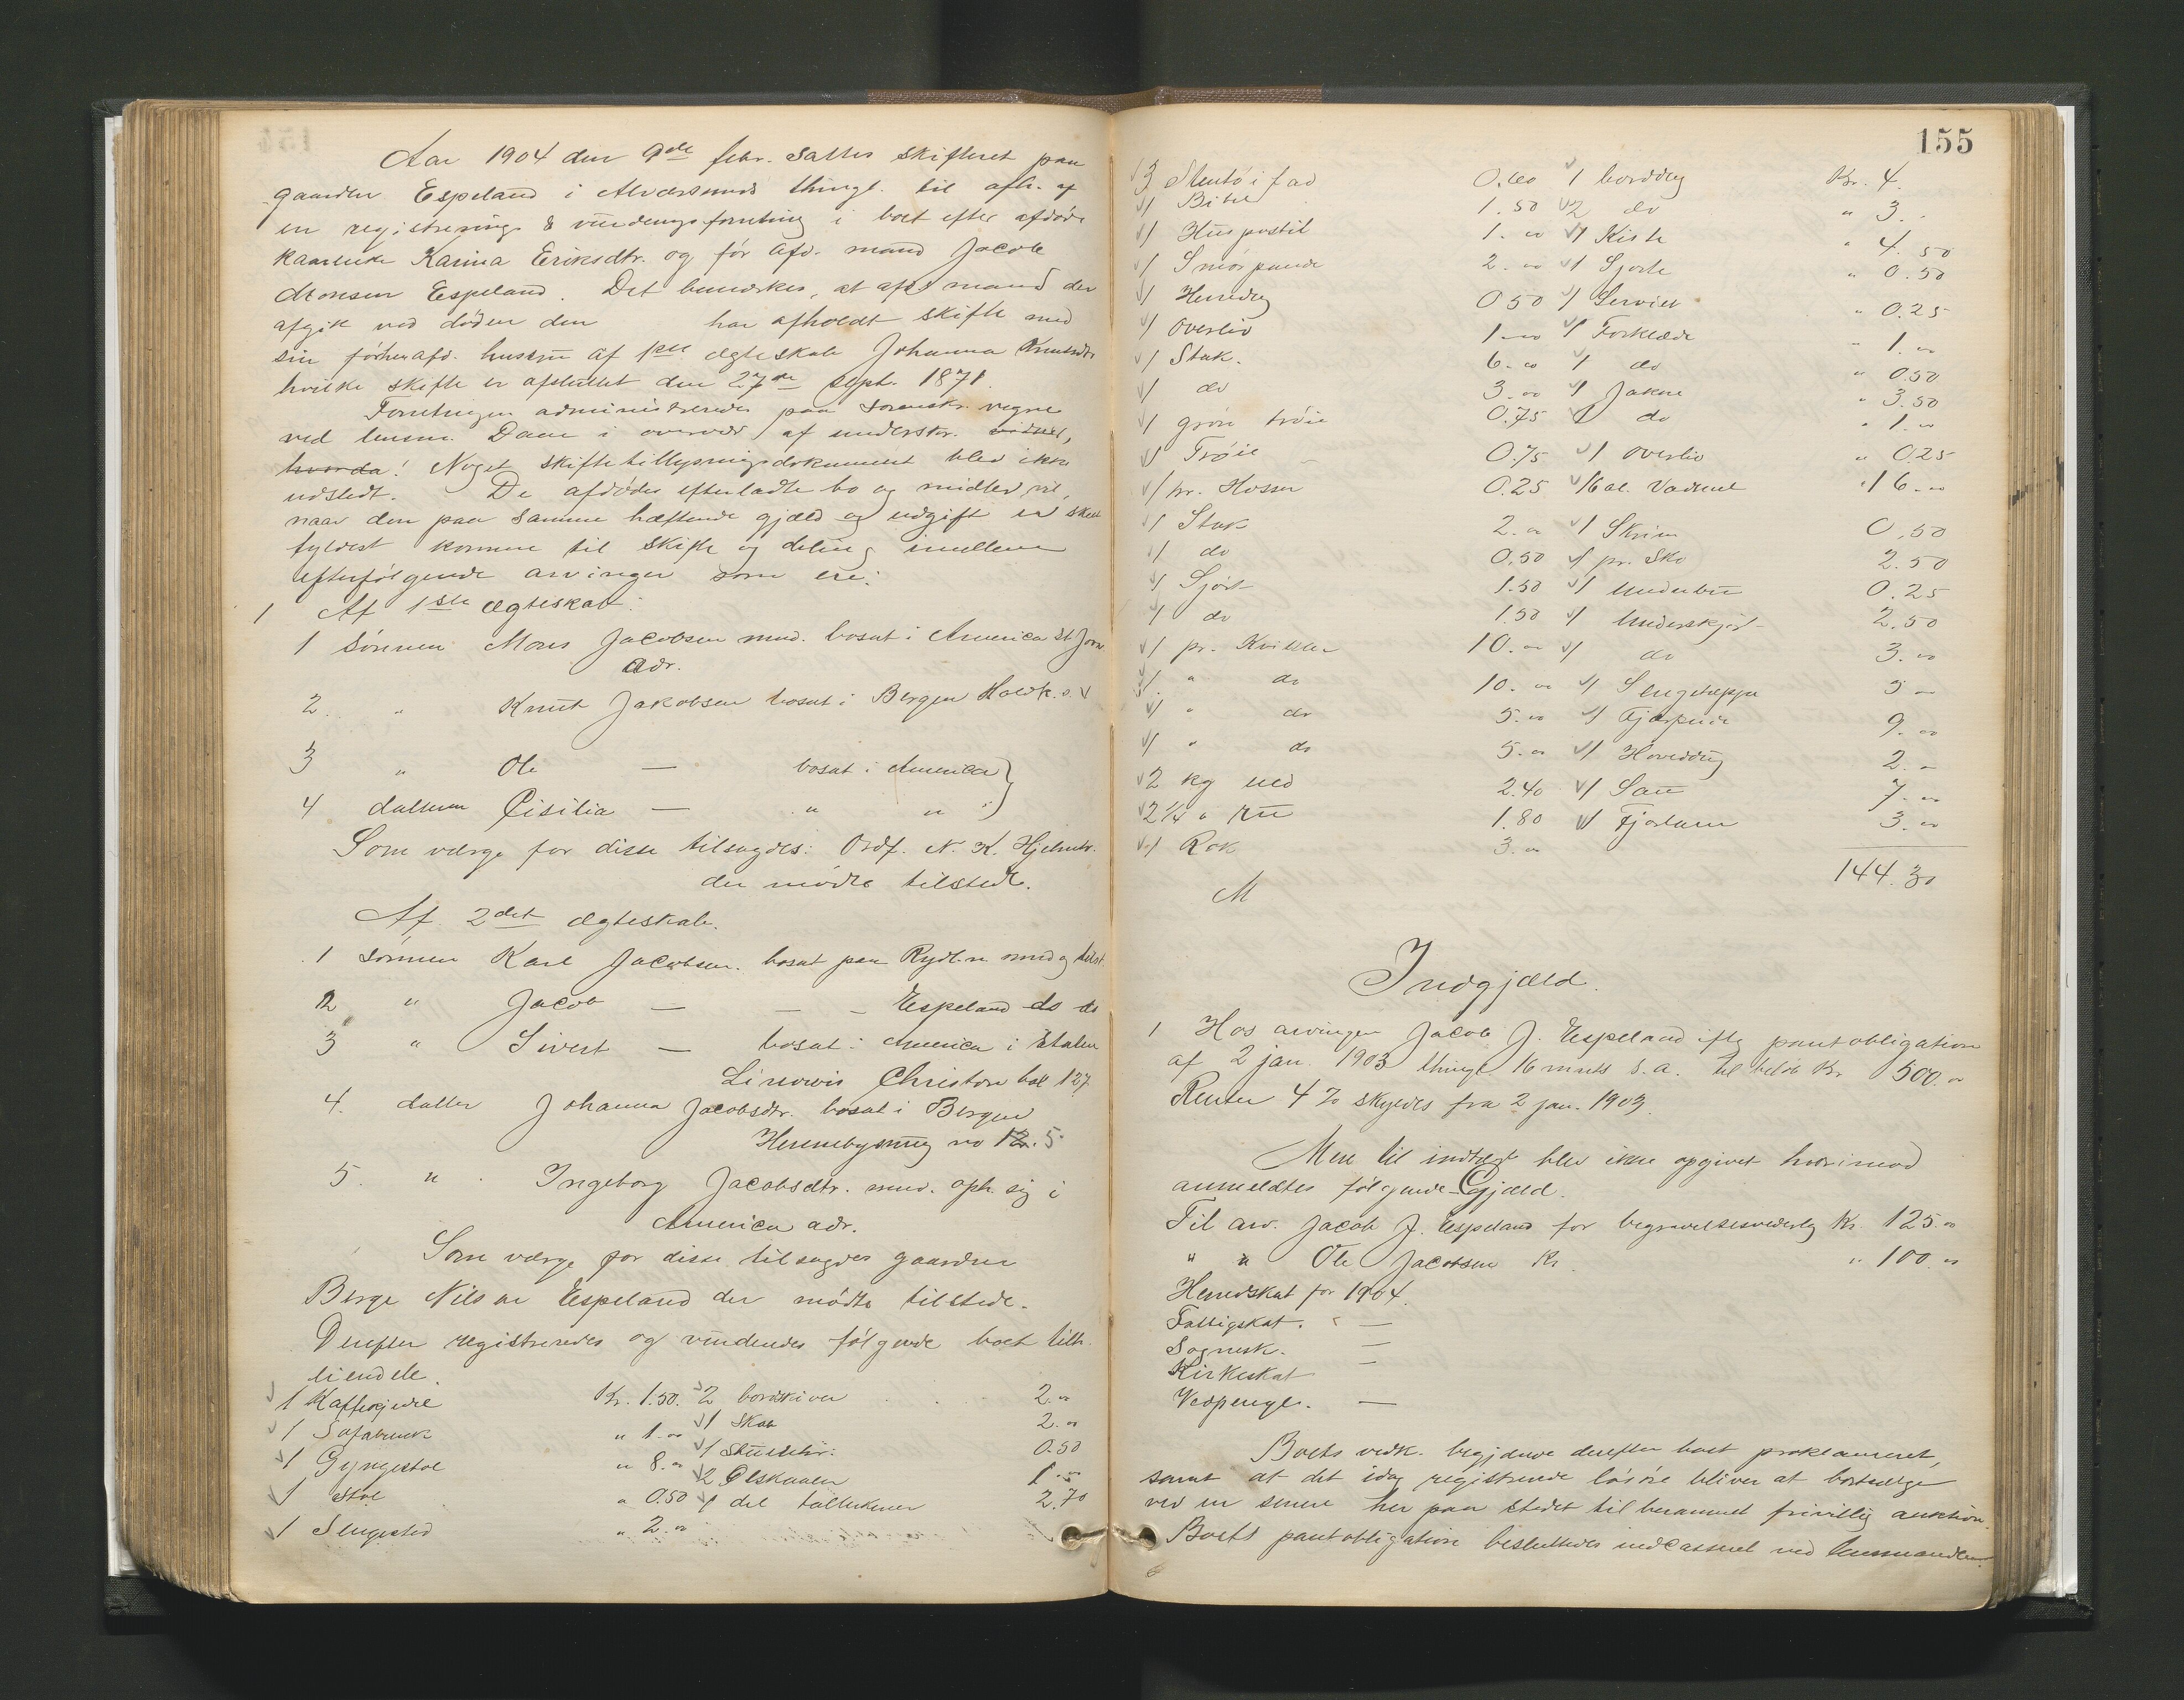 Aar 1904 den 9de febr. sattes skifteret paa
gaarden Espeland i Alversunds thingl. til afh. af
en registrerings & vurderingsforretning i boet efter afdøde
kaarenke Karina Eriksdtr. og før afd. mand Jacob
Monsen Espeland. Det bemærkes, at afd. mand der
afgik ved døden den har afholdt skifte med
sin førhen afd. hustru af 1ste ægteskab Johanna Knutsdtr.
hvilke skifte er afsluttet den 27de sept. 1871.
Forretningen administreredes paa sorenskr. vegne
ved lensm. Dam i overvær af underskr. vidner,
hvorda! Noget skiftetillysningsdokument blev ikke
udstedt. De afdødes efterladte bo og midler vil,
naar den paa samme hæftende gjæld og udgift er sket
fyldest komme til skifte og deling imellem
efterfølgende arvinger som ere:
1 Af 1ste ægteskab:
1 sønnen Mons Jacobsen mnd. bosat i America
adr.
2 " Knut Jakobsen bosat i Bergen
3 " Ole — bosat i America
4 datteren Cisilia — " "
Som værge for disse tilsagdes: Ordf. N. K. Hjelmtv.
der mødte tilstede.
Af 2det ægteskab.
1 sønnen Karl Jacobsen. bosat paa Rydl.n mnd og tilst.
2 " Jacob — — — Espeland do do
3 " Sivert — bosat i America i Staten
Christon box 127
4. datter Johanna Jacobsdtr. bosat i Bergen
no 12. 5
5. " Ingeborg Jacobsdtr. mnd. oph. sig i
America adr.
Som værge for disse tilsagdes gaardbr.
Berge Nilsen Espeland der mødte tilstede.
Derefter registreredes og vurderedes følgende boet tilh.
eiendele.
1 Kaffekjedel Kr. 1.50. 2 bordskiver 2.00
1 Sofabænk " 1.00 1 Skab 2.00
1 Gyngestol " 8.00 1 Stueuhr. 0.50
1 Stol " 0.50 2 Ølskaaler 1.00
1 del tallerkener 2.70
1 Sengested " 2.00
155
3 Stentøifad 0.60 1 borddug Kr. 4.
1 Bibel 1.50 2 do " 3.
1 Huspostil 1.00 1 Kiste " 4.50
1 Smørpande 2.00 1 Sjorte " 0.50
1 0.50 1 Serviet " 0.25
1 Overliv 1.00 1 Forklæde " 1.00
1 Stak. 6.00 1 do " 0.50
1 do 3.00 1 Jakke " 3.50
1 grøn trøie 0.75 1 do " 1.00
1 Trøie 0.75 1 Overliv " 0.25
1 pr. Hosser 0.25 16 al. Vadmel " 16.00
1 Stak 2.00 1 Skrin 0.50
1 do 0.50 1 pr. Sko 2.50
1 Sjørt 1.50 1 Underbu 0.25
1 do 1.50 1 Underskjørt 2.50
1 pr. Kvitler 10.00 1 do 3.00
1 " do 10.00 1 Sengeteppe 5.00
1 " do 5.00 1 Fjærpude 9.00
1 " do 5.00 1 Hoveddug 2.00
2 kg uld 2.40 1 Sau 7.00
2 1/4 " ru 1.80 1 Fjorlam 3.00
1 Rok 3.00
144.30
M
Indgjæld.
1 Hos arvingen Jacob J. Espeland iflg. pantobligation
af 2 jan. 1903 thingl. 16 marts s.a. til beløb Kr. 500.00
Renter 4 % skyldes fra 2 jan. 1903.
Mere til indtægt blev ikke opgivet hvorimod
anmeldtes følgende Gjæld.
Til arv. Jacob J. Espeland for begravelsesvederlag Kr. 125.00
" " Ole Jacobsen Kr. " 100.00
Herredskat for 1904.
Fattigskat. " —
Sognesk. —
Kirkeskat —
Vedpenge. —
Boets vedk. begjærede derefter boet proklameret,
samt at det idag registrerede løsøre bliver at bortsælge
ved en senere her paa stedet til berammet frivillig auktion.
Boets pantobligation besluttedes indcasseret ved lensmanden.